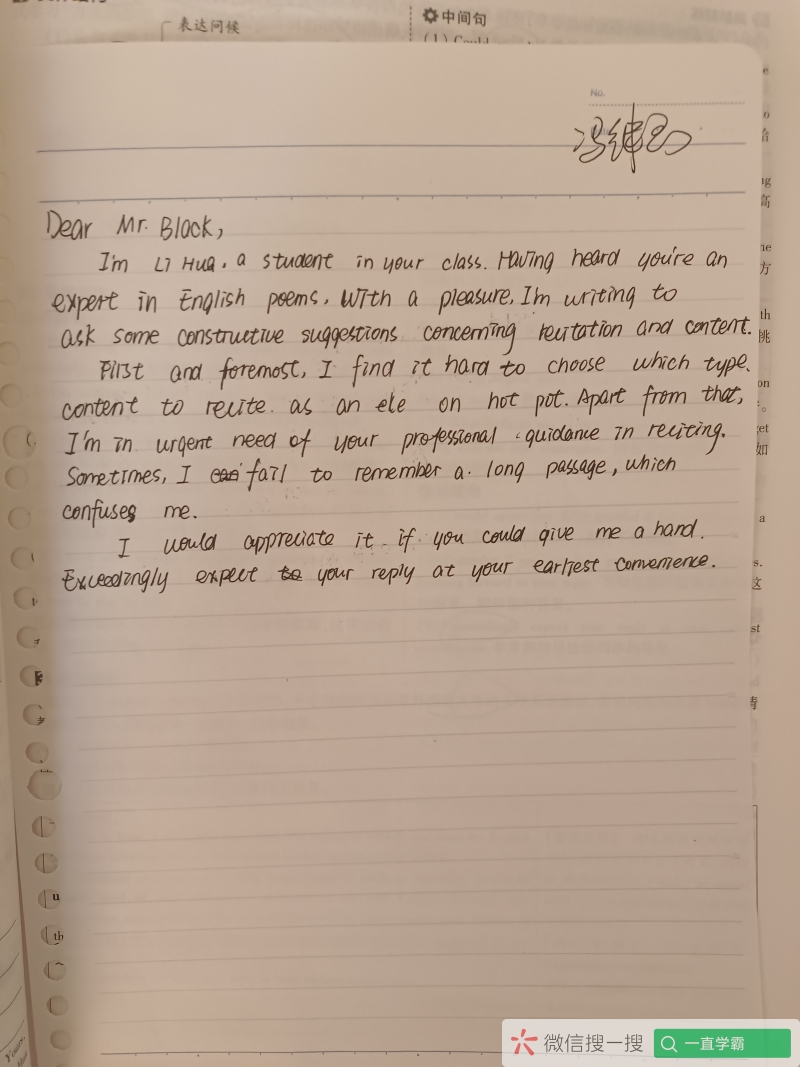 表达问候
中间句
(1) Could
No.
Dear Mr. Block,
I'm Li Hua. a student in your class. Having heard you're an
expert in English poems, With a pleasure, I'm writing to
ask some constructive suggestions concerning recitation and content.
First and foremost, I find it hard to choose which type.
content to recite. as an ele on hot pot. Apart from that,
I'm in urgent need of your professional guidance in reciting.
Sometimes, I can fail to remember a long passage, which
confuses me.
I would appreciate it if you could give me a hand.
Exceedingly expect to your reply at your earliest convenience.
微信搜一搜
一直学霸